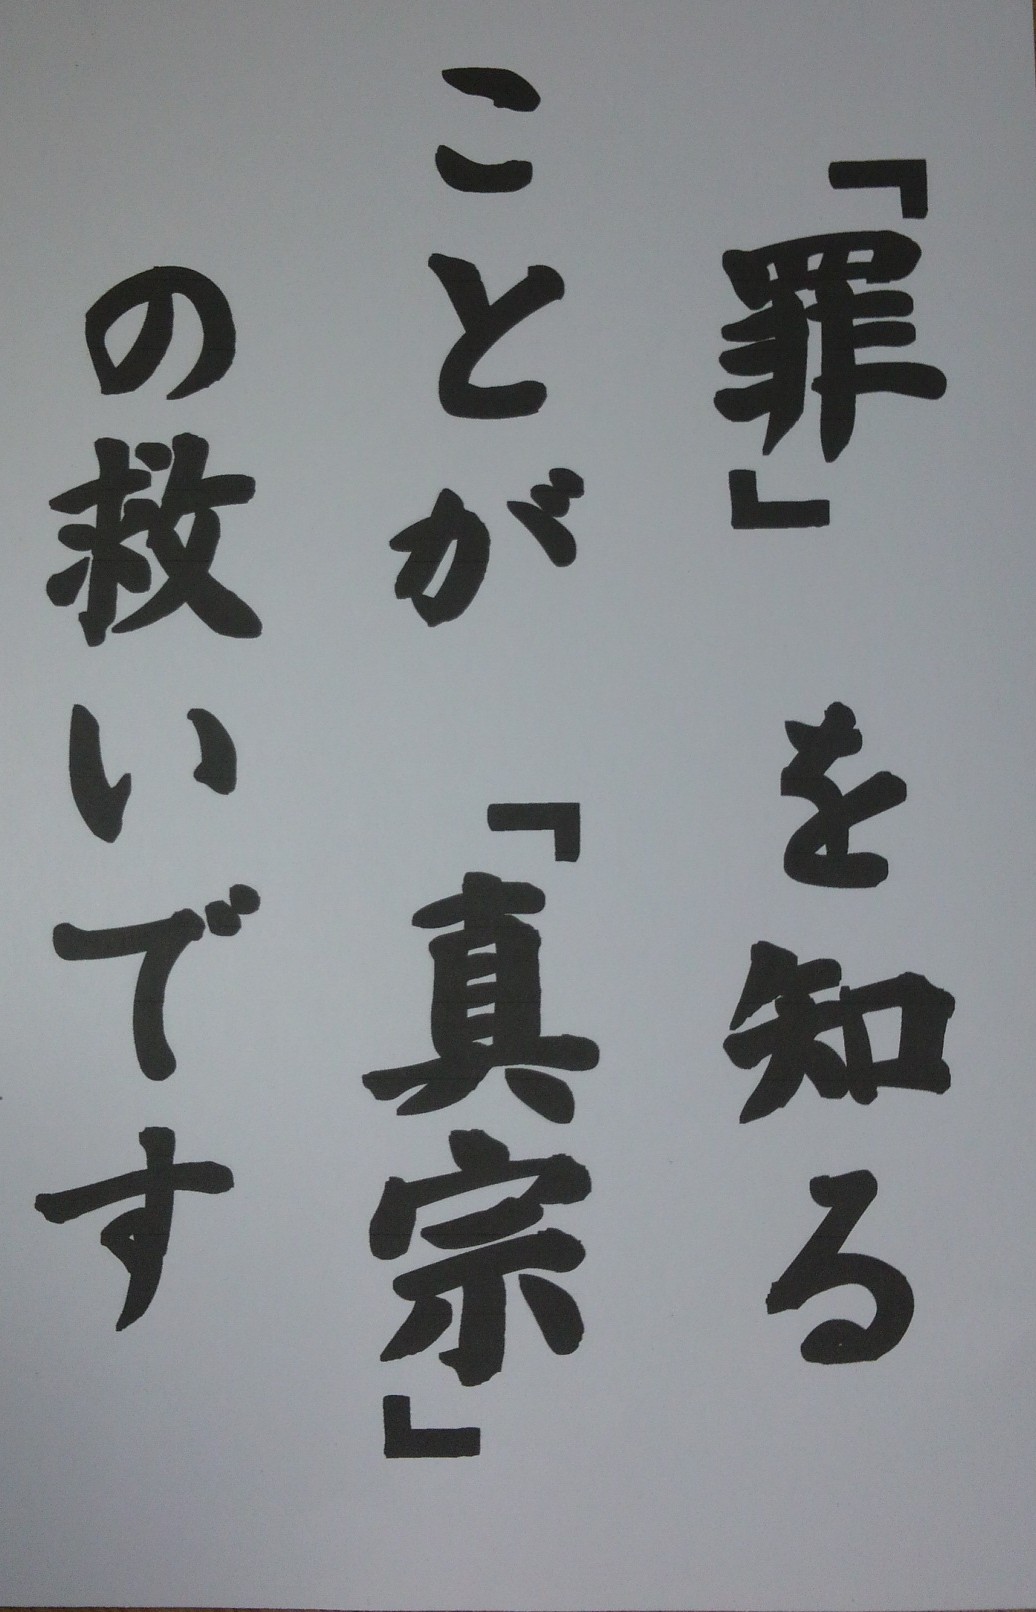 「罪」を知る
ことが「真宗」
の救いです